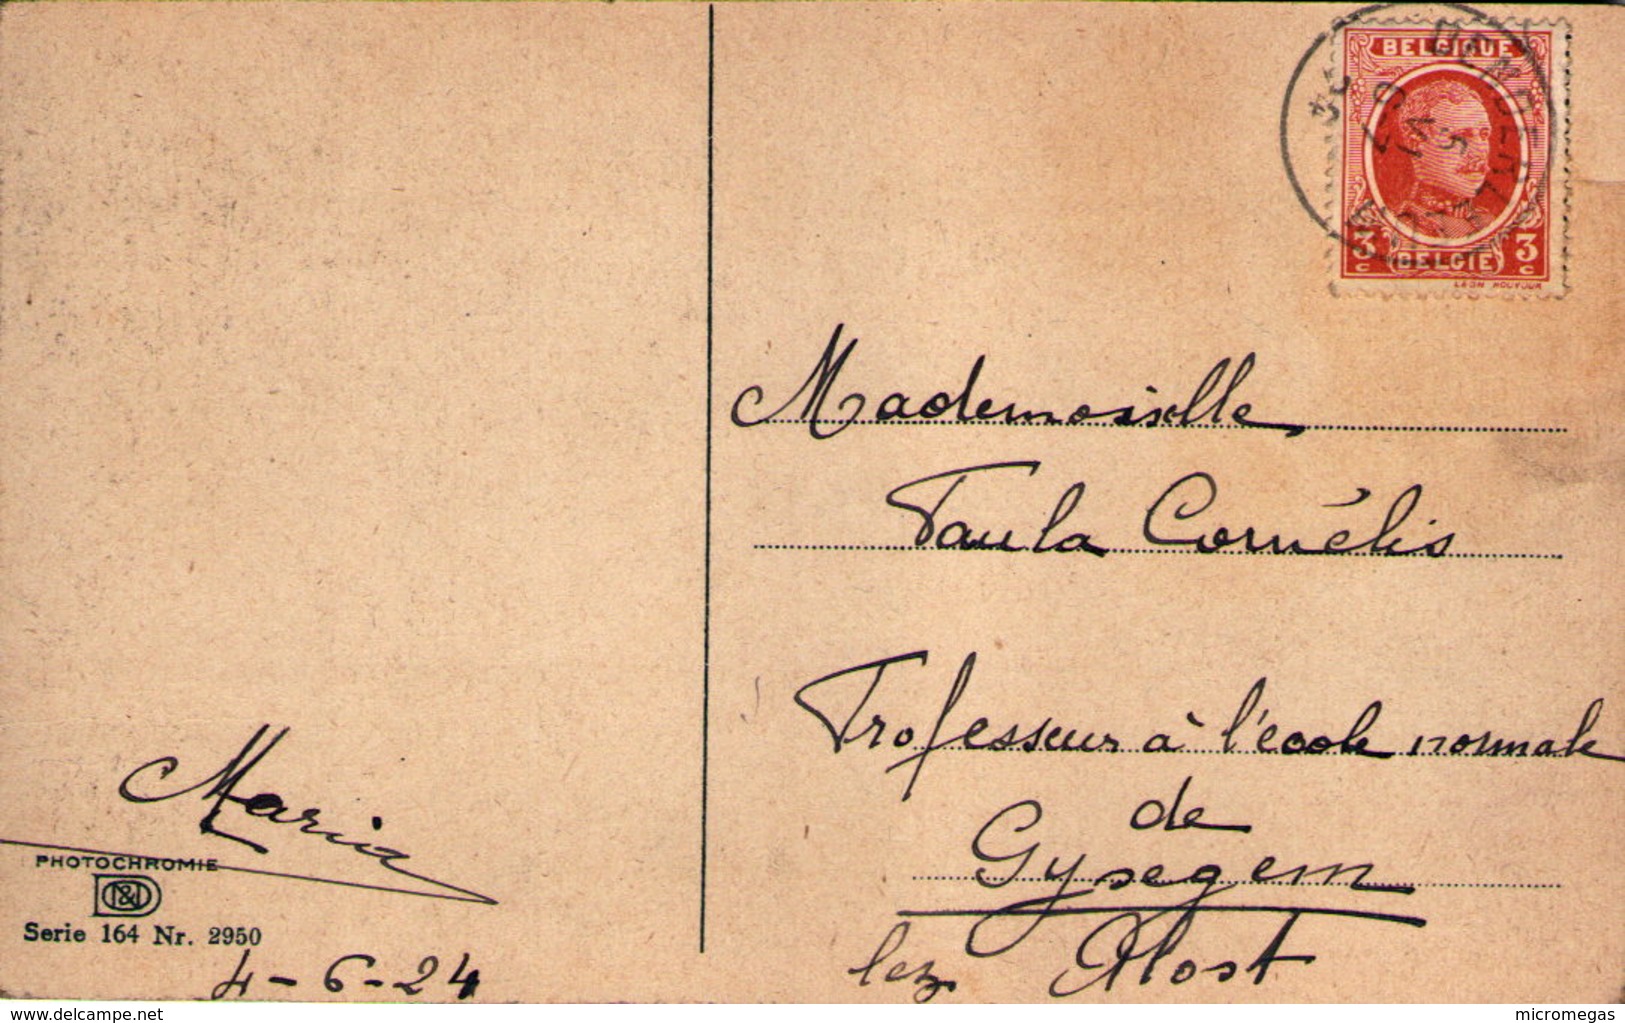 BELGIQUE
3 c BELGIE 3 c
5
VI
6-7
24
Mademoiselle
Paula Cornélis
Professeur à l'école normale
de
Gysegem
lez Alost
Maria
PHOTOCHROMIE
Serie 164 Nr. 2950
4-6-24
www.delcampe.net
micromegas